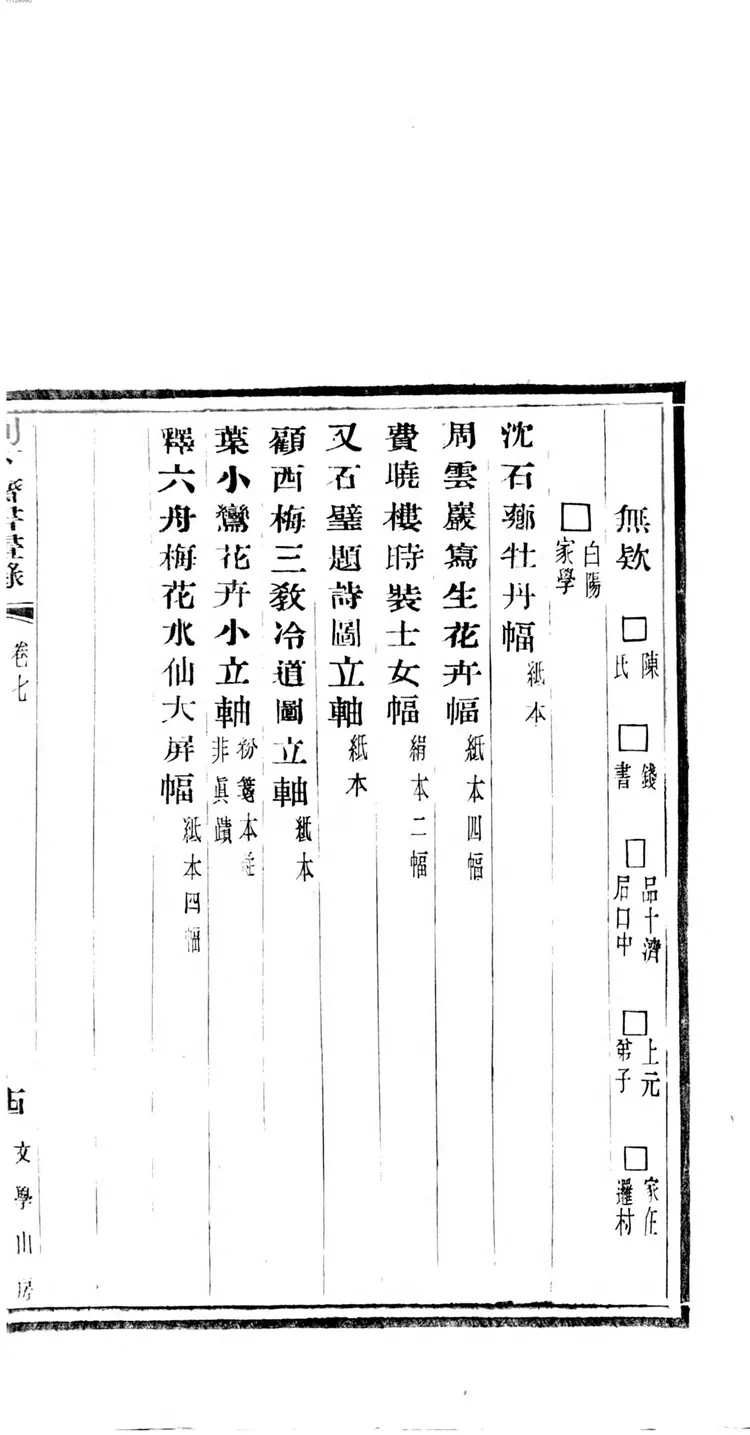 無款 □ 陳氏 □ 錢書 □ 品十濟居口中 □ 上元弟子 □ 家在邏村
□ 白陽家學
沈石薌牡丹幅 紙本
周雲巖寫生花卉幅 紙本四幅
費曉樓時裝士女幅 絹本二幅
又石壁題詩圖立軸 紙本
顧西梅三教冷道圖立軸 紙本
葉小鸞花卉小立軸 粉箋本 非眞蹟
釋六舟梅花水仙大屏幅 紙本四幅
卷七
文學山房